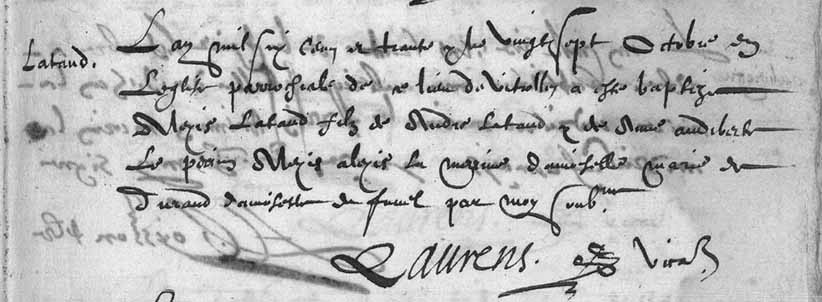 Lataud.
L an mil six cens et trante & le vingt sept octobre en
L eglise parrochiale de ce lieu de vitrolles a este baptize
Alexis Lataud filz de Andre Lataud & de Anne audiberte
Le perin Alexis alexis la marrine damoiselle marie de
Durand damoiselle de fuvel par moy soub.ne
Laurens. vica.